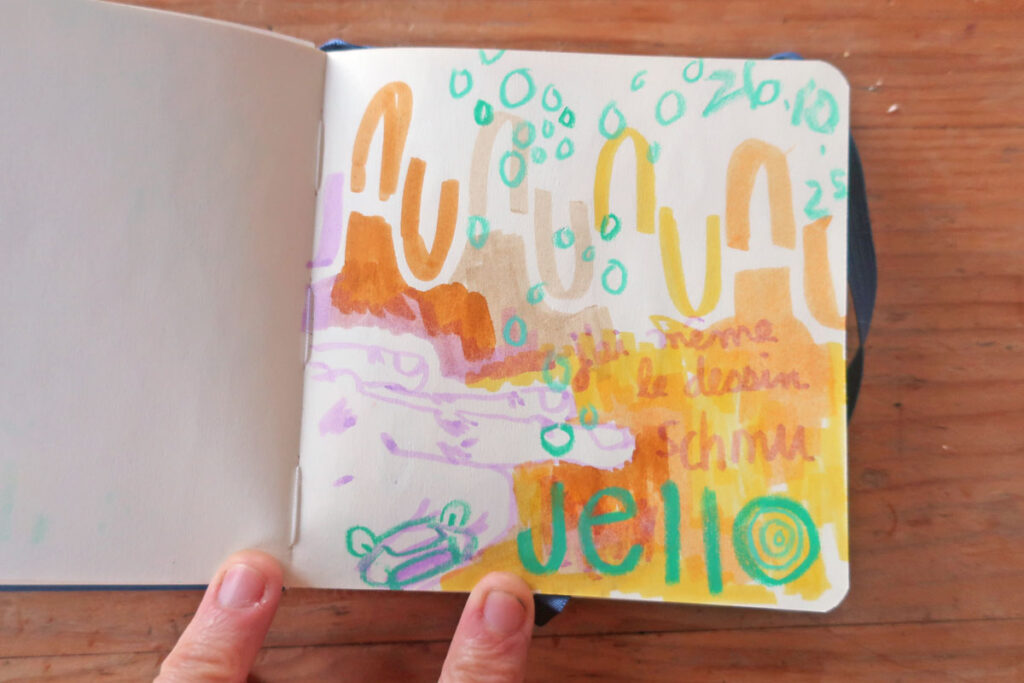 26.10.
25
j'ai même
le dessin
Schmu
Jello